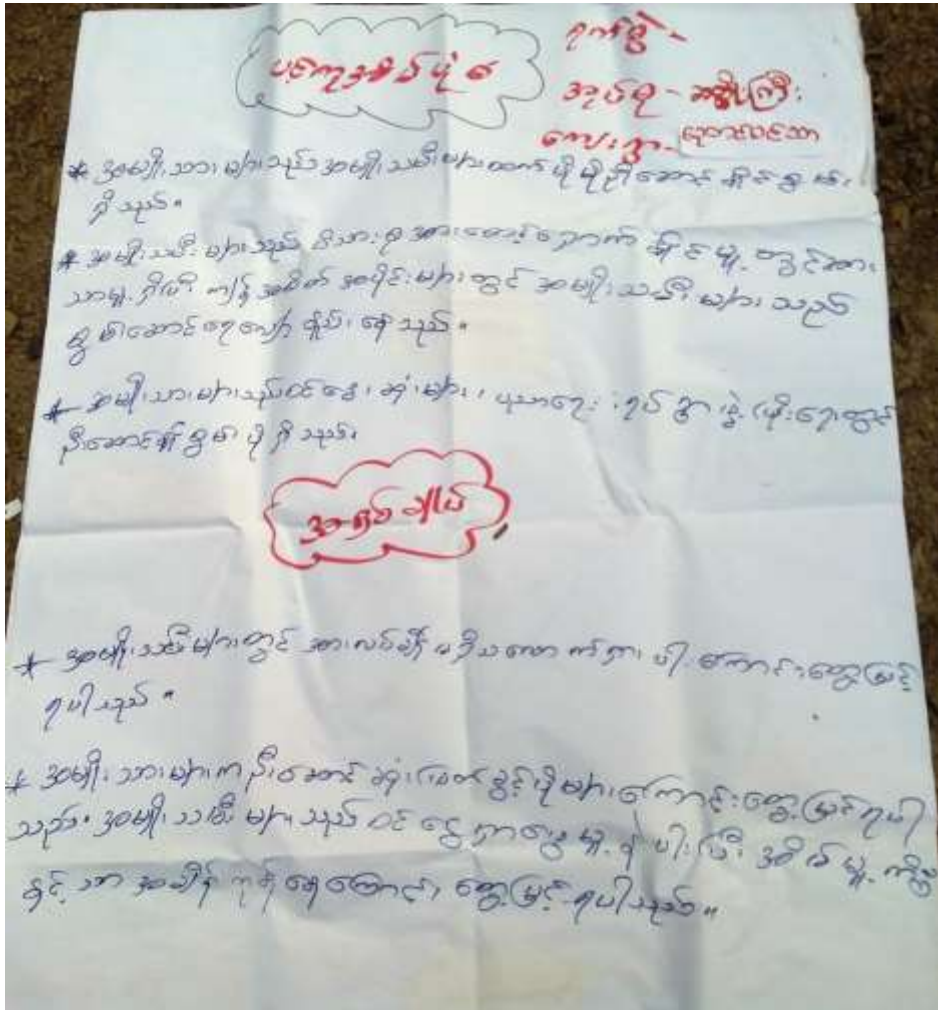 ရက်စွဲ -
အုပ်စု -
ကျေးရွာ -
* အမျိုးသားများသည် အမျိုးသမီးများထက် ပို၍ ဦးဆောင်နိုင်စွမ်း
ရှိသည်။
* အမျိုးသမီးများသည် မိသားစု အားစောင့်ရှောက်နိုင်မှု့ တွင်အား
သာမှု့ ရှိပြီး ကျန် အစိတ် အပိုင်းများတွင် အမျိုးသမီးများသည်
စွမ်းဆောင်ရေလျော့ နည်းနေသည်။
* အမျိုးသားများသည် ဝင်ငွေ၊ ဆုံးမ၊ ပညာရေး၊ ရပ်ရွာဖွံ့ဖြိုးရေးတွင်
ဦးဆောင်နိုင်စွမ်းပို ရှိသည်။
အနှစ်ချုပ်
* အမျိုးသမီးများတွင် အားလပ်ချိန် မရှိသလောက်ရှားပါးကြောင်းတွေ့မြင့်
ရပါသည်။
* အမျိုးသားများက ဦးဆောင်ဆုံးဖြတ်ခွင့်ပိုများကြောင်းတွေ့မြင်ရပါ
သည်။ အမျိုးသမီးများသည် ဝင်ငွေရှာဖွေမှု့ နဲပါးပြီး အိမ်မှု့ကိစ္စ
နှင့်သာ အချိန်ကုန်နေကြောင်း တွေ့မြင့်ရပါသည်။